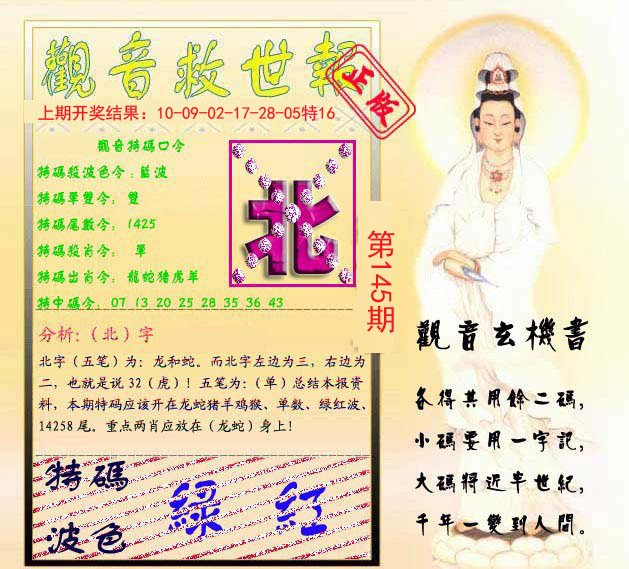 觀音救世報
正版
上期开奖结果：10-09-02-17-28-05特16
觀音特碼口令
特碼段波色令：藍波
特碼單雙令： 雙
特碼尾數令： 1425
特碼段肖令： 單
特碼出肖令： 龍蛇猪虎羊
特中碼令： 07 13 20 25 28 35 36 43
北
第145期
分析：（北）字
北字（五笔）为：龙和蛇。而北字左边为三，右边为
二，也就是说 32（虎）！五笔为：（单）总结本报资
料，本期特码应该开在龙蛇猪羊鸡猴、单数、绿红波、
14258 尾。重点两肖应放在（龙蛇）身上！
特碼
波色
綠 紅
觀音玄機書
各得其用餘二碼，
小碼要用一字記，
大碼將近半世紀，
千年一變到人間。